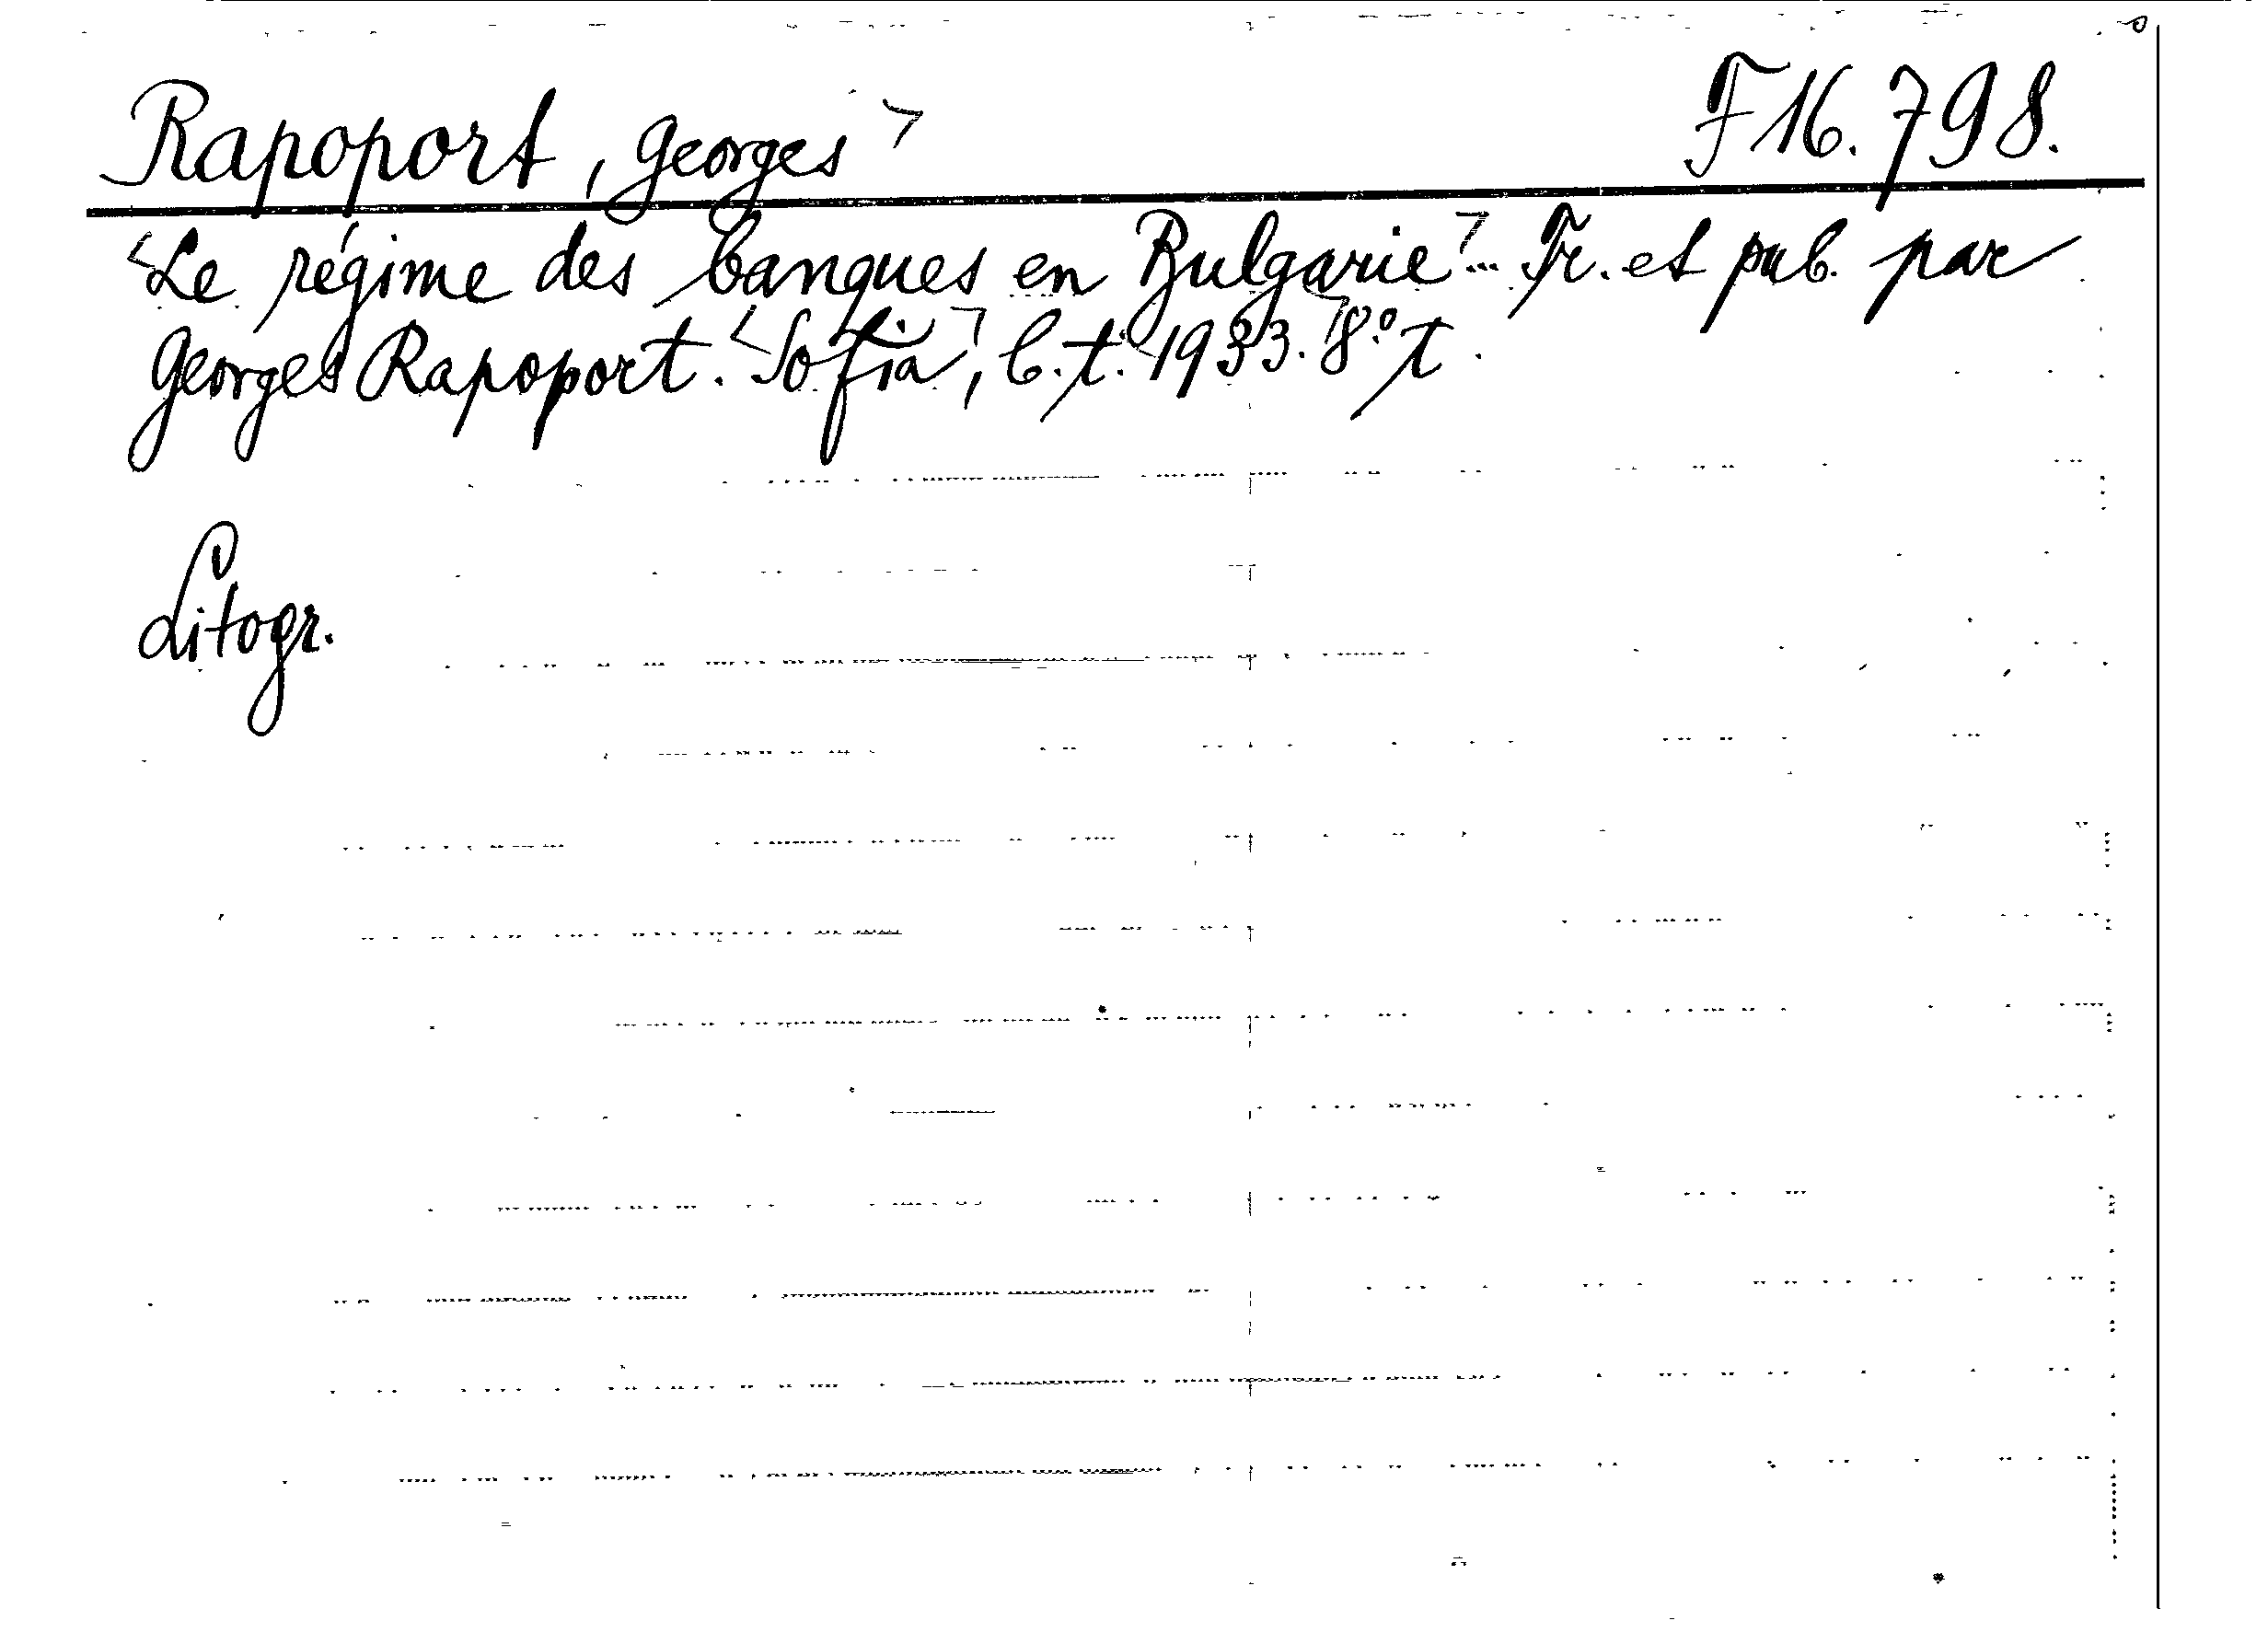 Rapoport, Georges F16.798.
Le régime des banques en Bulgarie... Tr. et pub. par
Georges Rapoport. Sofia, b.t. 1933. 8:° t.
Litogr.